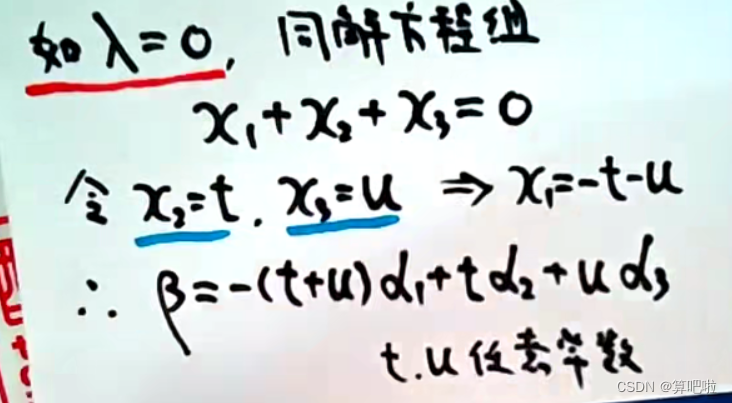 如λ=0, 同解方程组
x₁+x₂+x₃=0
令 x₂=t, x₃=u ⇒ x₁=-t-u
∴ β=-(t+u)α₁+tα₂+uα₃
t.u任意常数
CSDN @算吧啦